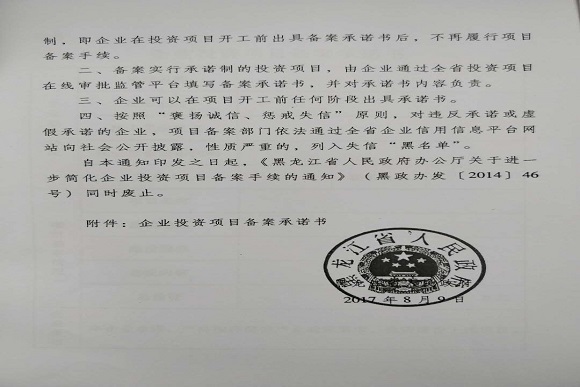 制，即企业在投资项目开工前出具备案承诺书后，不再履行项目
备案手续。
二、备案实行承诺制的投资项目，由企业通过全省投资项目
在线审批监管平台填写备案承诺书，并对承诺书内容负责。
三、企业可以在项目开工前任何阶段出具承诺书。
四、按照“褒扬诚信、惩戒失信”原则，对违反承诺或虚
假承诺的企业，项目备案部门依法通过全省企业信用信息平台网
站向社会公开披露，性质严重的，列入失信“黑名单”。
自本通知印发之日起，《黑龙江省人民政府办公厅关于进一
步简化企业投资项目备案手续的通知》（黑政办发〔2014〕46
号）同时废止。
附件：企业投资项目备案承诺书
黑龙江省人民政府
2017年8月9日